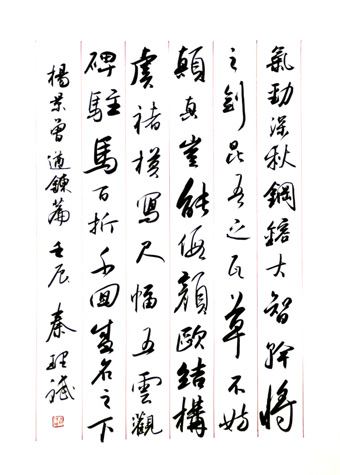 氣勁深秋鋼鎔大智幹將
之劍昆吾之瓦草不妨
顛真豈能假顏歐結構
虞褚模寫尺幅五雲觀
碑駐馬百折千回盛名之下
楊景曾遒鍊篇壬辰秦